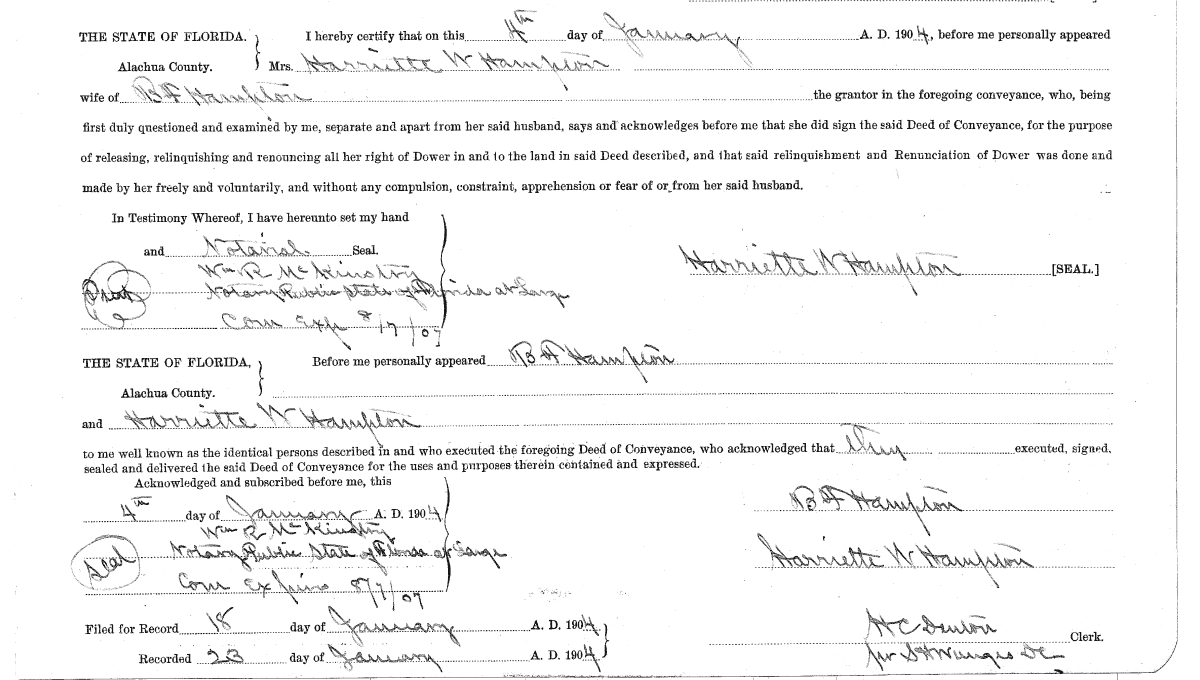 THE STATE OF FLORIDA. I hereby certify that on this 4th day of January A. D. 1904, before me personally appeared
Alachua County. Mrs. Harriette W Hampton
wife of B F Hampton the grantor in the foregoing conveyance, who, being
first duly questioned and examined by me, separate and apart from her said husband, says and acknowledges before me that she did sign the said Deed of Conveyance, for the purpose
of releasing, relinquishing and renouncing all her right of Dower in and to the land in said Deed described, and that said relinquishment and Renunciation of Dower was done and
made by her freely and voluntarily, and without any compulsion, constraint, apprehension or fear of or from her said husband.
In Testimony Whereof, I have hereunto set my hand
and Notarial Seal.
Harriette W Hampton [SEAL.]
Wm R McKinstry
Seal Notary Public State of Florida at Large
Com Exp 8/7/07
THE STATE OF FLORIDA, Before me personally appeared B F Hampton
Alachua County.
and Harriette W Hampton
to me well known as the identical persons described in and who executed the foregoing Deed of Conveyance, who acknowledged that they executed, signed,
sealed and delivered the said Deed of Conveyance for the uses and purposes therein contained and expressed.
Acknowledged and subscribed before me, this
4th day of January A. D. 1904 B F Hampton
Wm R McKinstry
Seal Notary Public State of Florida at Large Harriette W Hampton
Com Expires 8/7/07
Filed for Record 18 day of January A. D. 1904 H C Denton Clerk.
Recorded 23 day of January A. D. 1904 per S H Wienges DC